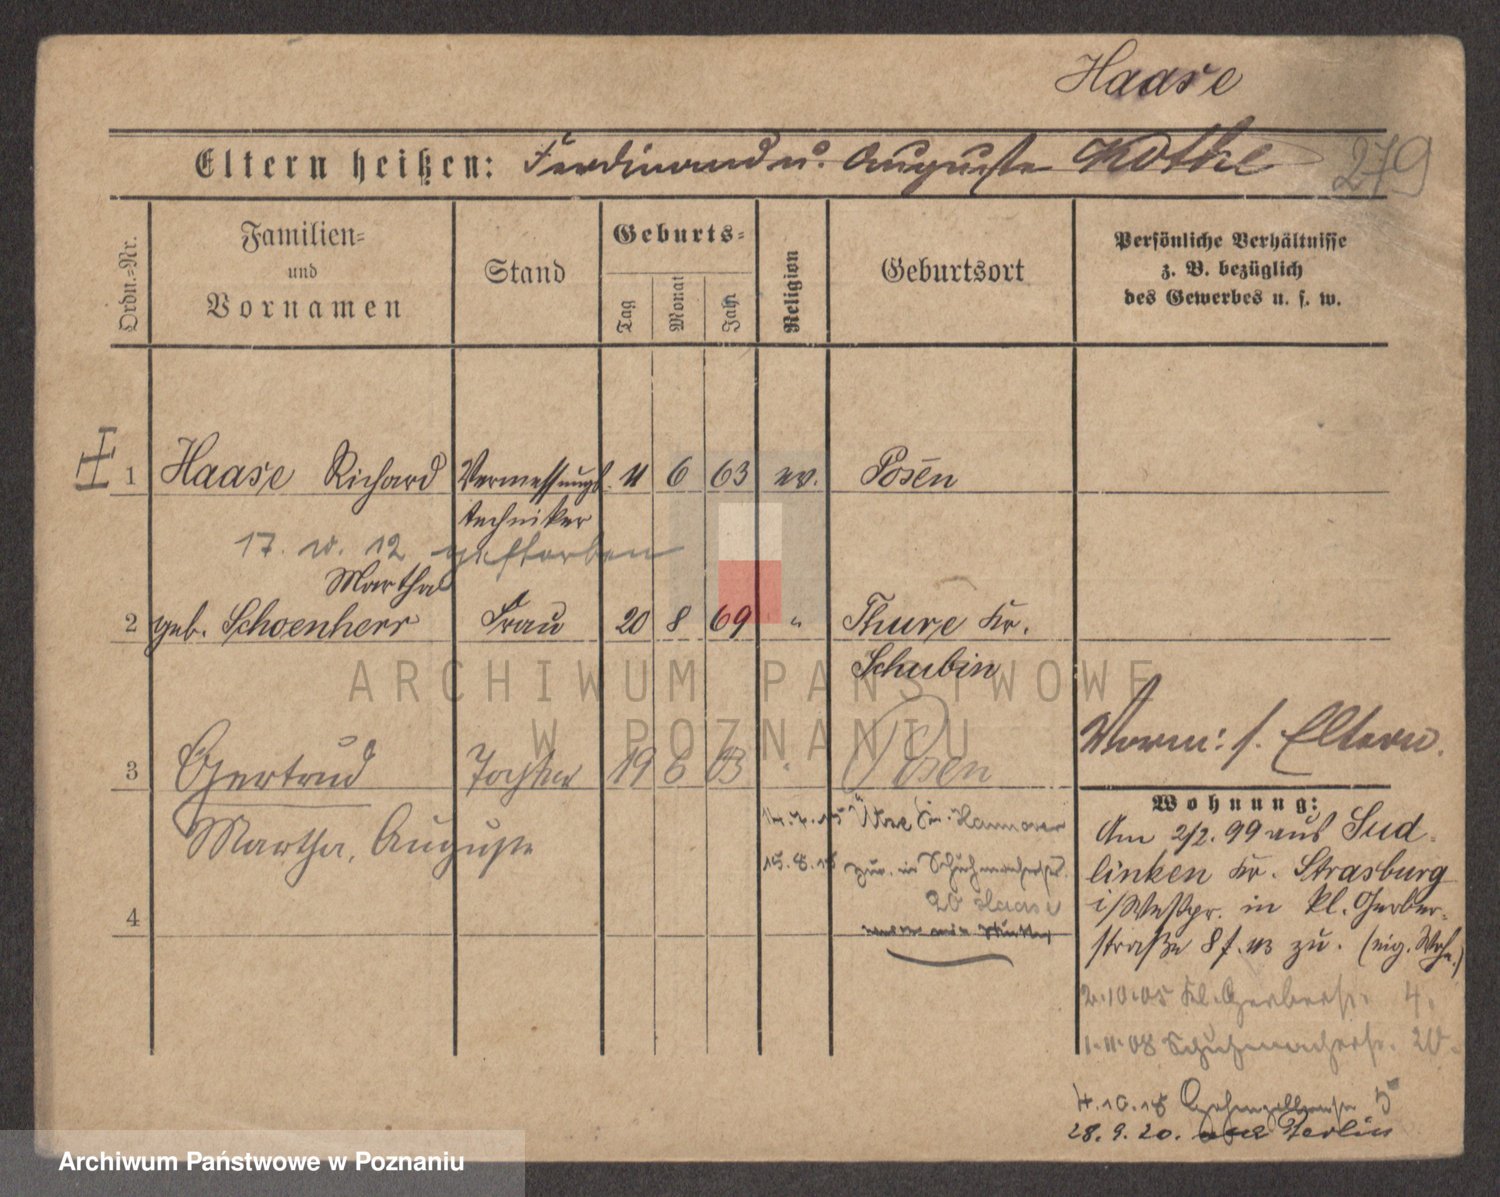 Haase
Eltern heißen: Ferdinand u. Auguste Kothe
279
Ordn.=Nr.
Familien=
und
Vornamen
Stand
Geburts=
Tag
Monat
Jahr
Religion
Geburtsort
Persönliche Verhältnisse
z. B. bezüglich
des Gewerbes u. s. w.
1 Haase Richard Vermessungs- 11 6 63 ev. Posen
techniker
17. 12 gestorben
Martha
2 geb. Schoenherr Frau 20 8 69 " Thure Kr.
Schubin
ARCHIWUM PAŃSTWOWE
W POZNANIU
3 Gertrud Tochter 19 6 Posen
Martha, Auguste
Vorm: s. Eltern.
Wohnung:
Kr. Hannover
zur. in Schuhmacherstr.
20 Haase
4
Am 2/2. 99 aus Sud-
linken Kr. Strasburg
i/Westpr. in kl. Gerber-
straße 8 f. zu. (eig. Wohn.)
2.10.05 Kl. Gerberstr. 4.
1.11.08 Schuhmacherstr. 20.
4.10.18 5
28.9.20. Berlin
Archiwum Państwowe w Poznaniu